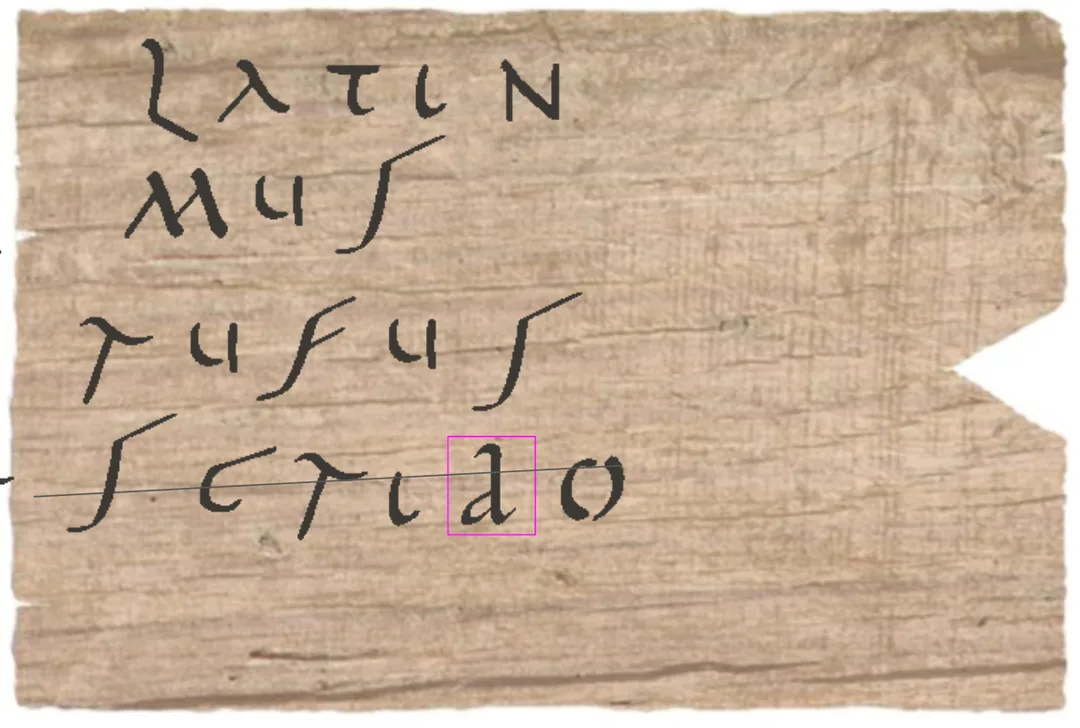 LATIN
MUS
RUFUS
SCRIBO